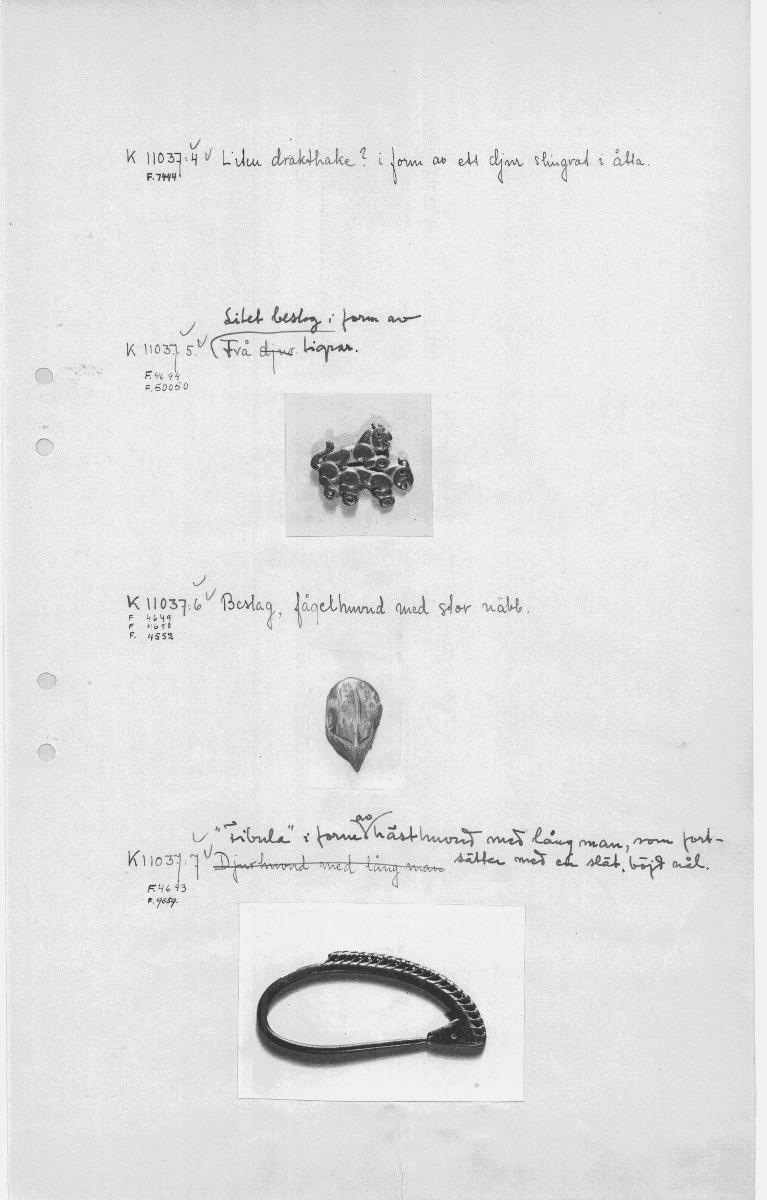 K 11037:4 Liten dräkthake? i form av ett djur slingrat i åtta.
F.7444
Litet beslag i form av
K 11037:5. (Två djur tigrar.
F.4694
F.50050
K 11037:6 Beslag, fågelhuvud med stor näbb.
F 4649
F 4650
F. 4552
"Fibula" i form av hästhuvud med lång man, som fort-
K 11037:7 Djurhuvud med lång man sätter med en slät, böjd nål.
F.4693
F.9659.